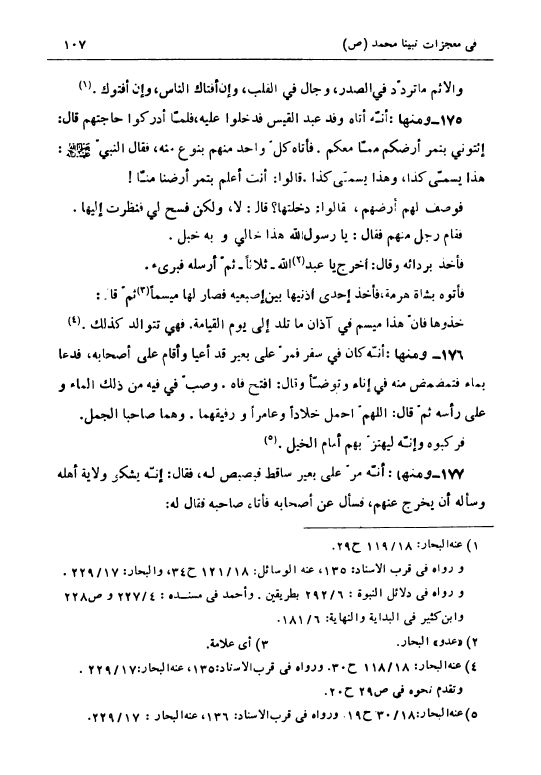 فى معجزات نبينا محمد (ص) ١٠٧
والاثم ماتردّد في الصدر، وجال في القلب، وإن أفتاك الناس، وإن أفتوك . (١)
١٧٥ـ ومنها : أنّه أتاه وفد عبد القيس فدخلوا عليه، فلمّا أدركوا حاجتهم قال:
إئتوني بتمر أرضكم ممّا معكم . فأتاه كلّ واحد منهم بنوع منه، فقال النبيّ ﷺ :
هذا يسمّى كذا، وهذا يسمّى كذا . قالوا: أنت أعلم بتمر أرضنا منّا !
فوصف لهم أرضهم ، فقالوا: دخلتها؟ قال: لا، ولكن فسح لي فنظرت إليها .
فقام رجل منهم فقال : يا رسول الله هذا خالي و به خبل .
فأخذ بردائه وقال: أخرج يا عبد(٢) الله ـ ثلاثاً ـ ثمّ أرسله فبرىء .
فأتوه بشاة هرمة، فأخذ إحدى اذنيها بين إصبعيه فصار لها ميسماً(٣) ثمّ قال :
خذوها فانّ هذا ميسم في آذان ما تلد إلى يوم القيامة. فهي تتوالد كذلك . (٤)
١٧٦ـ ومنها : أنّه كان في سفر فمرّ على بعير قد أعيا وأقام على أصحابه، فدعا
بماء فتمضمض منه في إناء وتوضّأ وقال: افتح فاه . وصبّ في فيه من ذلك الماء و
على رأسه ثمّ قال: اللهمّ احمل خلاداً وعامراً و رفيقهما . وهما صاحبا الجمل.
فركبوه وإنّه ليهتزّ بهم أمام الخيل . (٥)
١٧٧ـ ومنها : أنّه مرّ على بعير ساقط فبصبص له، فقال: إنّه يشكو ولاية أهله
وسأله أن يخرج عنهم، فسأل عن أصحابه فأتاه صاحبه فقال له:
١) عنه البحار: ١١٩/١٨ ح٢٩.
و رواه فى قرب الاسناد: ١٣٥، عنه الوسائل: ١٢١/١٨ ح٣٤، والبحار: ٢٢٩/١٧ .
و رواه فى دلائل النبوة : ٢٩٢/٦ بطريقين . وأحمد فى مسنده : ٢٢٧/٤ و ص٢٢٨
وابن كثير فى البداية والنهاية: ١٨١/٦.
٢) «عدو» البحار. ٣) أى علامة.
٤) عنه البحار: ١١٨/١٨ ح٣٠. ورواه فى قرب الاسناد: ١٣٥، عنه البحار: ٢٢٩/١٧ .
وتقدم نحوه فى ص٢٩ ح٢٠.
٥) عنه البحار: ٣٠/١٨ ح١٩. ورواه فى قرب الاسناد: ١٣٦، عنه البحار : ٢٢٩/١٧.